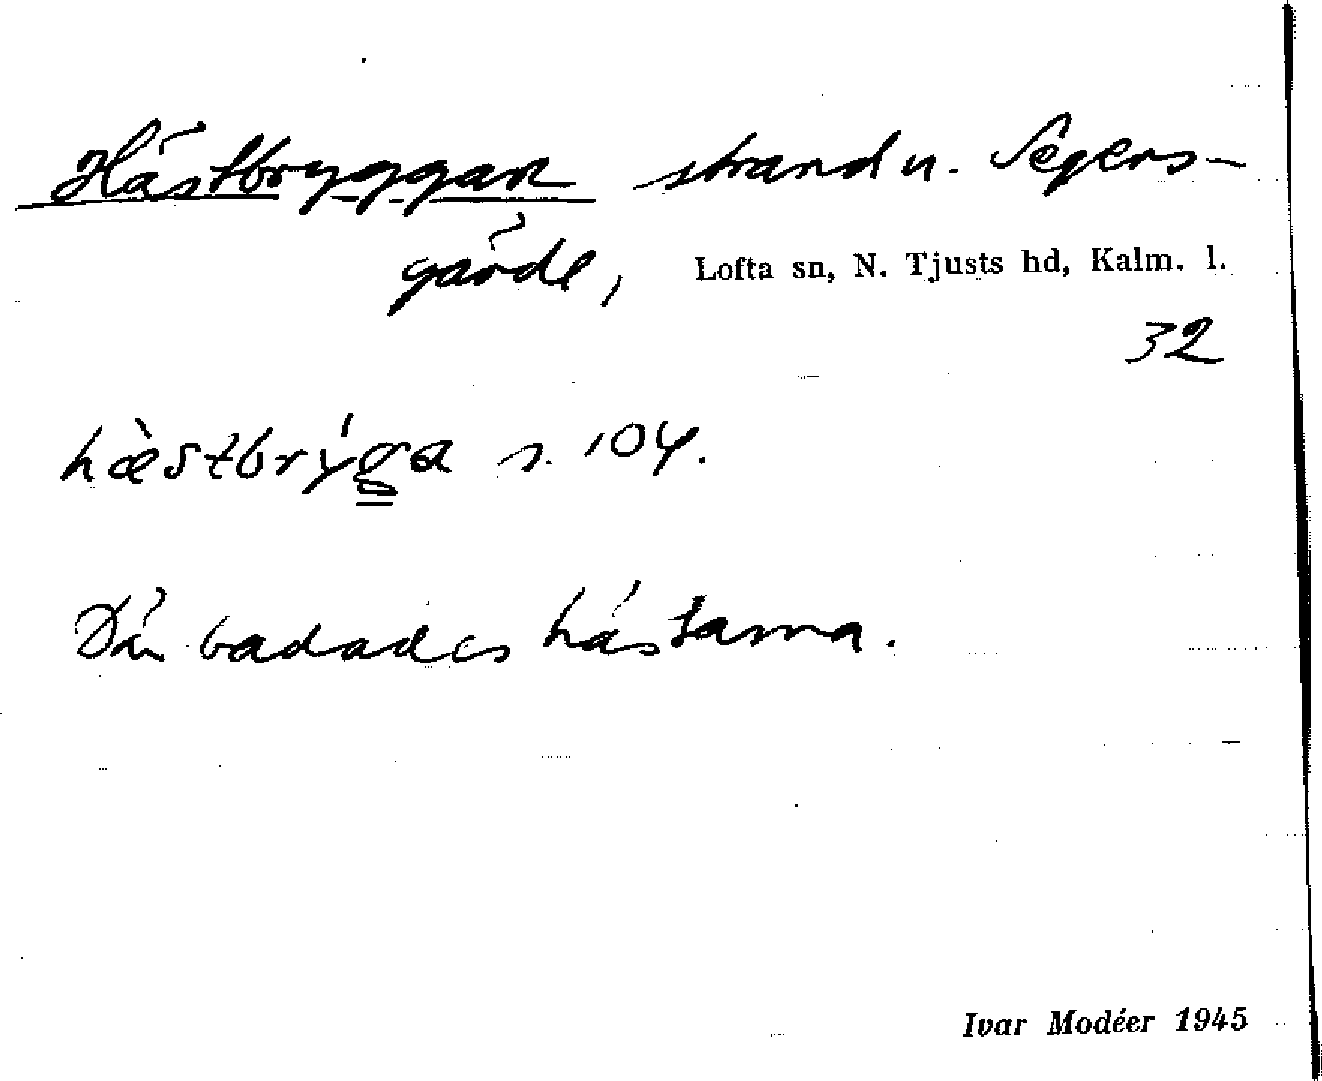 Hästbryggan strand u. Segers-
gärde, Lofta sn, N. Tjusts hd, Kalm. l.
32
hæ̀stbrýga s. 104.
Där badades hästarna.
Ivar Modéer 1945